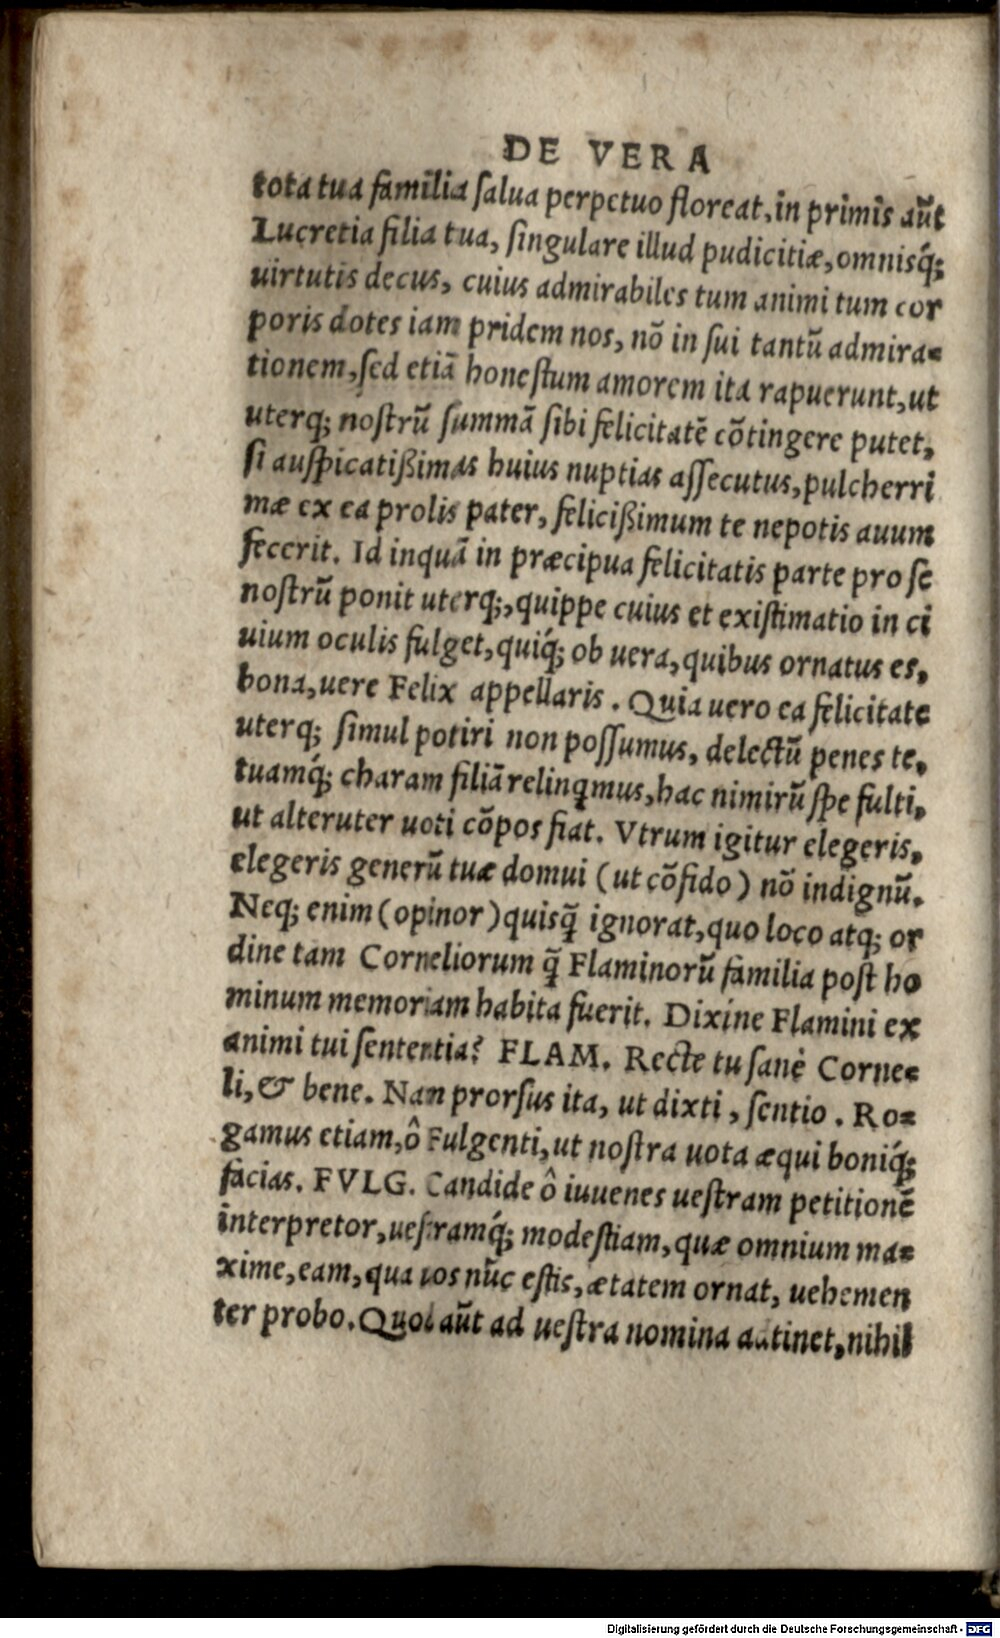 DE VERA
tota tua familia ſalua perpetuo floreat, in primis aũt
Lucretia filia tua, ſingulare illud pudicitiæ, omnisq́;
uirtutis decus, cuius admirabiles tum animi tum cor
poris dotes iam pridem nos, nõ in ſui tantũ admira-
tionem, ſed etiã honeſtum amorem ita rapuerunt, ut
uterq; noſtrũ ſummã ſibi felicitatẽ cõtingere putet,
ſi auſpicatißimas huius nuptias aſſecutus, pulcherri
mæ ex ea prolis pater, felicißimum te nepotis auum
fecerit. Id inquã in præcipua felicitatis parte pro ſe
noſtrũ ponit uterq;, quippe cuius et exiſtimatio in ci
uium oculis fulget, quiq́; ob uera, quibus ornatus es,
bona, uere Felix appellaris. Quia uero ea felicitate
uterq; ſimul potiri non poſſumus, delectũ penes te,
tuamq́; charam filiã relinqmus, hac nimirũ ſpe fulti,
ut alteruter uoti cõpos fiat. Vtrum igitur elegeris,
elegeris generũ tuæ domui (ut cõfido) nõ indignũ.
Neq; enim (opinor) quisq̃ ignorat, quo loco atq; or
dine tam Corneliorum q̃ Flaminorũ familia poſt ho
minum memoriam habita fuerit. Dixine Flamini ex
animi tui ſententia? FLAM. Recte tu ſanè Corne-
li, & bene. Nan prorſus ita, ut dixti, ſentio. Ro-
gamus etiam, ô Fulgenti, ut noſtra uota æqui boniq́;
facias. FVLG. Candide ô iuuenes ueſtram petitionẽ
interpretor, ueſtramq́; modeſtiam, quæ omnium ma-
xime, eam, qua uos nũc eſtis, ætatem ornat, uehemen
ter probo. Quod aũt ad ueſtra nomina attinet, nihil
Digitalisierung gefördert durch die Deutsche Forschungsgemeinschaft - DFG